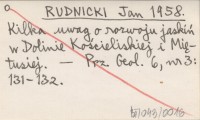 RUDNICKI Jan 1958.
Kilka uwag o rozwoju jaskiń
w Dolinie Kościeliskiej i Mię-
tusiej. — Prz. Geol. 6, nr 3:
131-132.